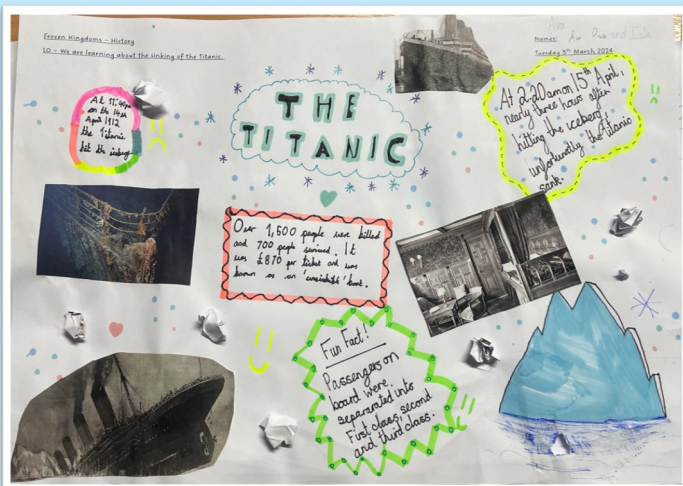 Frozen Kingdoms - History
LO - We are learning about the sinking of the Titanic.
Names:
and
Tuesday 5th March 2024
THE
TITANIC
At 11:40pm
on the 14th
April 1912
the Titanic
hit the iceberg
At 2:20am on 15th April,
nearly three hours after
hitting the iceberg
unfortunatly the Titanic
sank.
Over 1,500 people were killed
and 700 people survived. It
was £870 per ticket and was
known as an 'unsinkable' boat.
Fun Fact!
Passengers on
board were
separated into
First class, second
and third class.